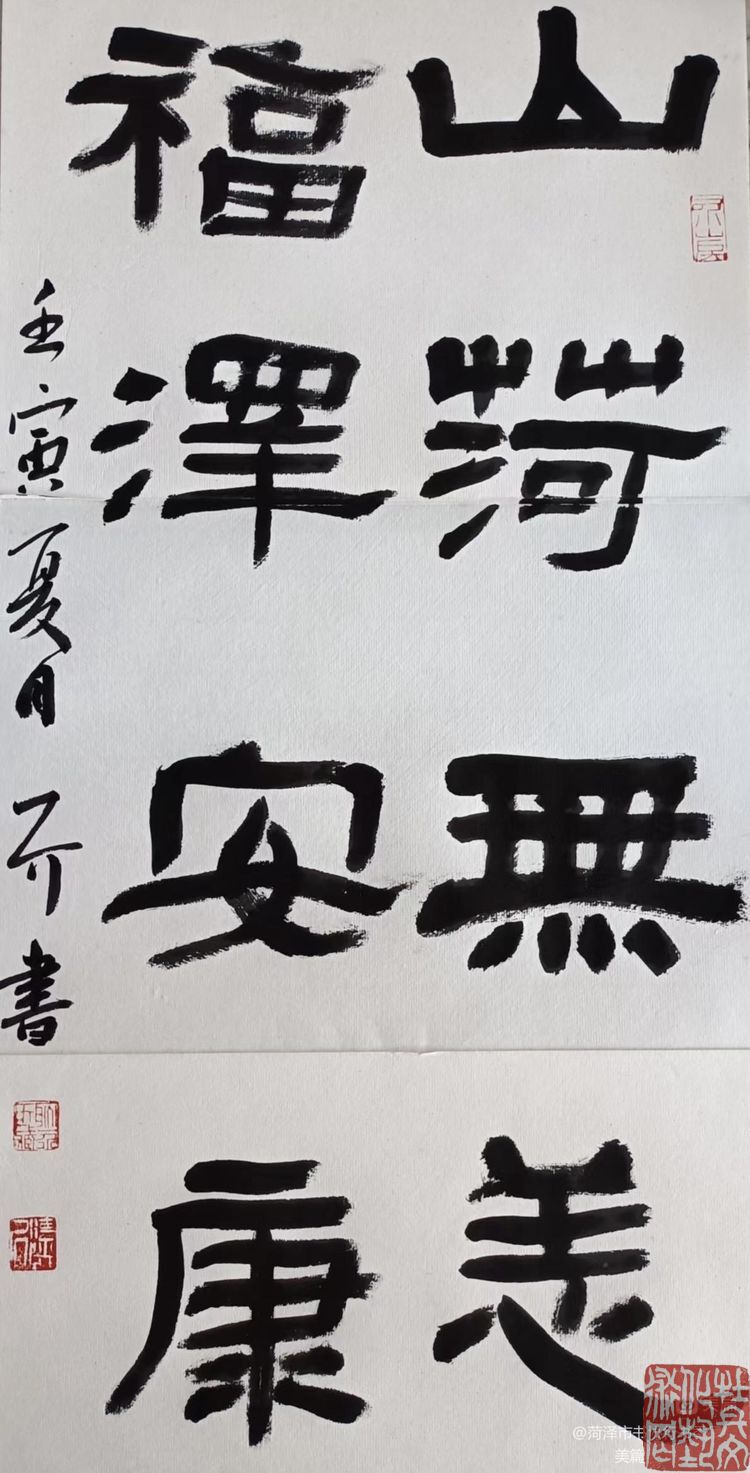 山菏無恙
福澤安康
壬寅夏月 書
@菏泽市
美篇